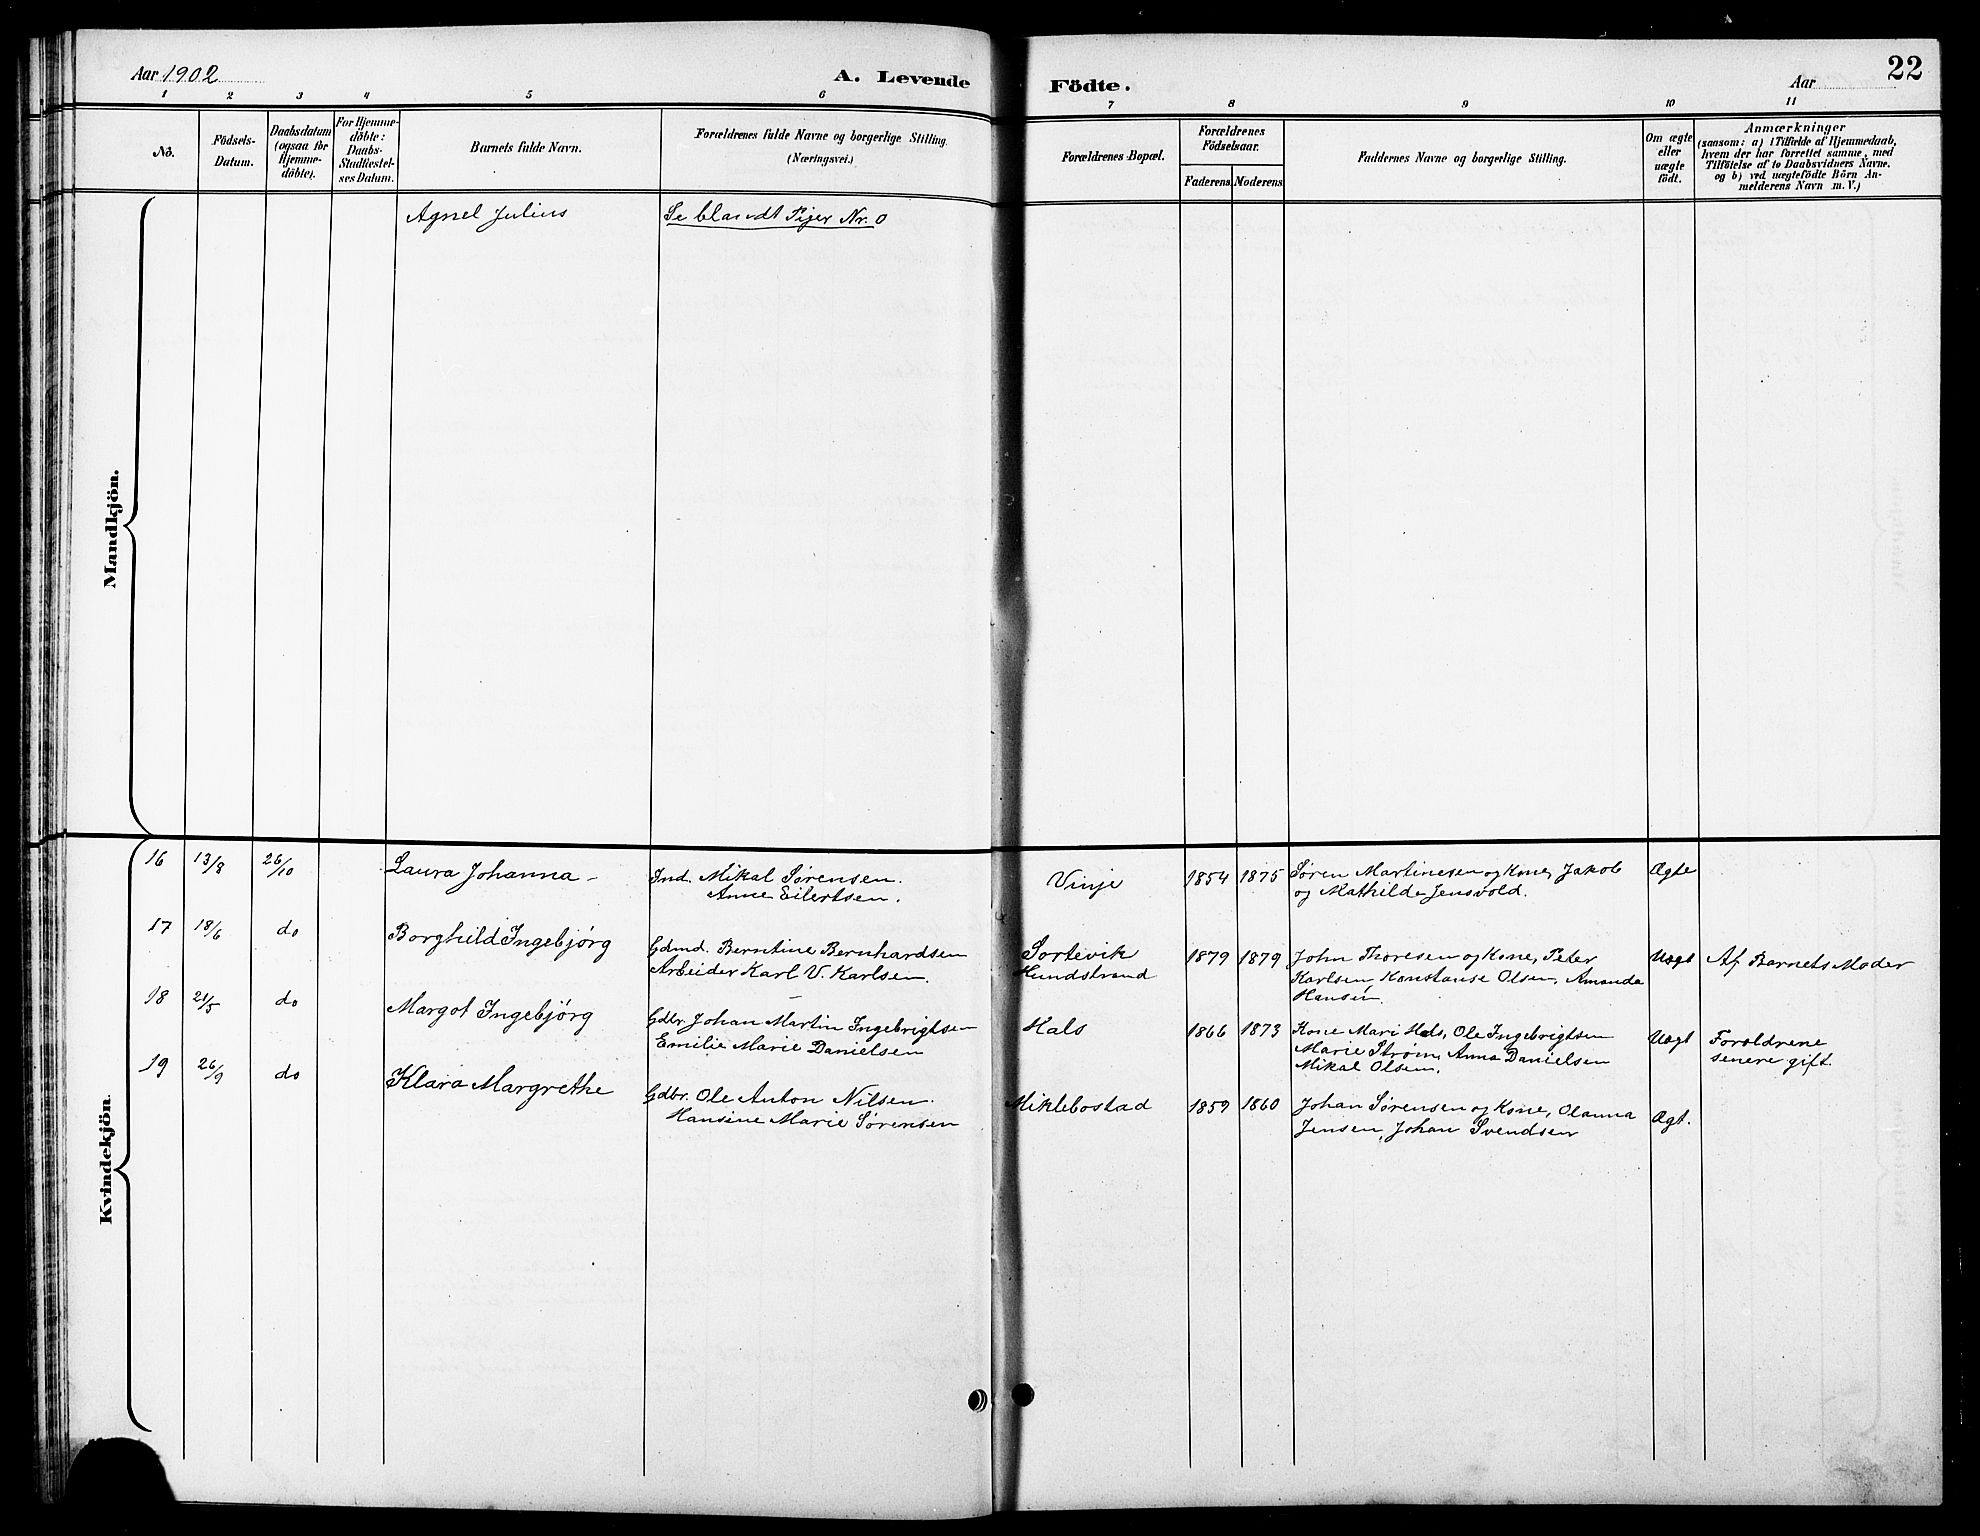 Aar 1902
A. Levende
Födte.
Aar
22
1 2 3 4 5 6 7 8 9 10 11
No.
Födsels-Datum.
Daabsdatum (ogsaa for Hjemme-döbte).
For Hjemme-döbte: Daabs-Stadfæstel-ses Datum.
Barnets fulde Navn.
Forældrenes fulde Navne og borgerlige Stilling. (Næringsvei.)
Forældrenes Bopæl.
Forældrenes Födselsaar.
Faderens. Moderens.
Faddernes Navne og borgerlige Stilling.
Om ægte eller uægte födt.
Anmærkninger
(saasom: a) i Tilfælde af Hjemmedaab,
hvem der har forrettet samme, med
Tilföielse af to Daabsvidners Navne.
og b) ved uægtefödte Börn An-
melderens Navn m. V.)
Mandkjön.
Agnel Julius Se blandt Piger Nr. 0
Kvindekjön.
16 13/8 26/10 Laura Johanna - Ind. Mikal Sørensen. Vinje 1854 1875 Søren Martinesen og Kone, Jakob Ægte
Anne Eilertsen. og Mathilde Jensvold.
17 18/6 do Borghild Ingebjörg Gdmd. Berntine Bernhardsen Sortevik 1879 1879 John Thoresen og Kone, Peter Uægt Af Barnets Moder
Arbeider Karl V. Karlsen. Hundstrand Karlsen, Konstanse Olsen, Amanda
Hansen.
18 21/5 do Margot Ingebjörg Gdbr. Johan Martin Ingebrigtsen Hals 1866 1873 Kone Mari Hals, Ole Ingebrigtsen Uægt Forældrene
Emilie Marie Danielsen Marie Strøm, Anna Danielsen senere gift.
Mikal Olsen.
19 26/9 do Klara Margrethe Gdbr. Ole Anton Nilsen. Miklebostad 1859 1860 Johan Sørensen og Kone, Olanna Ægt.
Hansine Marie Sørensen Jensen, Johan Svendsen